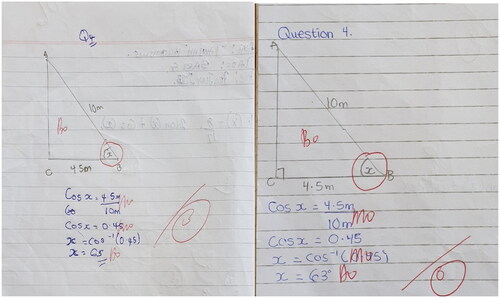 Q4
A
10m
Bo
x
C
B
4.5m
Cos x = 4.5m
10m
Mo
Cos x = 0.45
Mo
x = cos⁻¹(0.45)
x = 63
Bo
Question 4.
A
10m
Bo
x
C
B
4.5m
Cos x = 4.5m
10m
Mo
Cos x = 0.45
x = cos⁻¹(0.45)
Mo
x = 63°
Bo
0